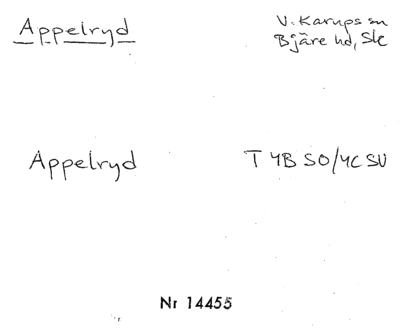 Appelryd
V. Karups sn
Bjäre hd, Sk
Appelryd
T 4B SO/4C SV
Nr 14455